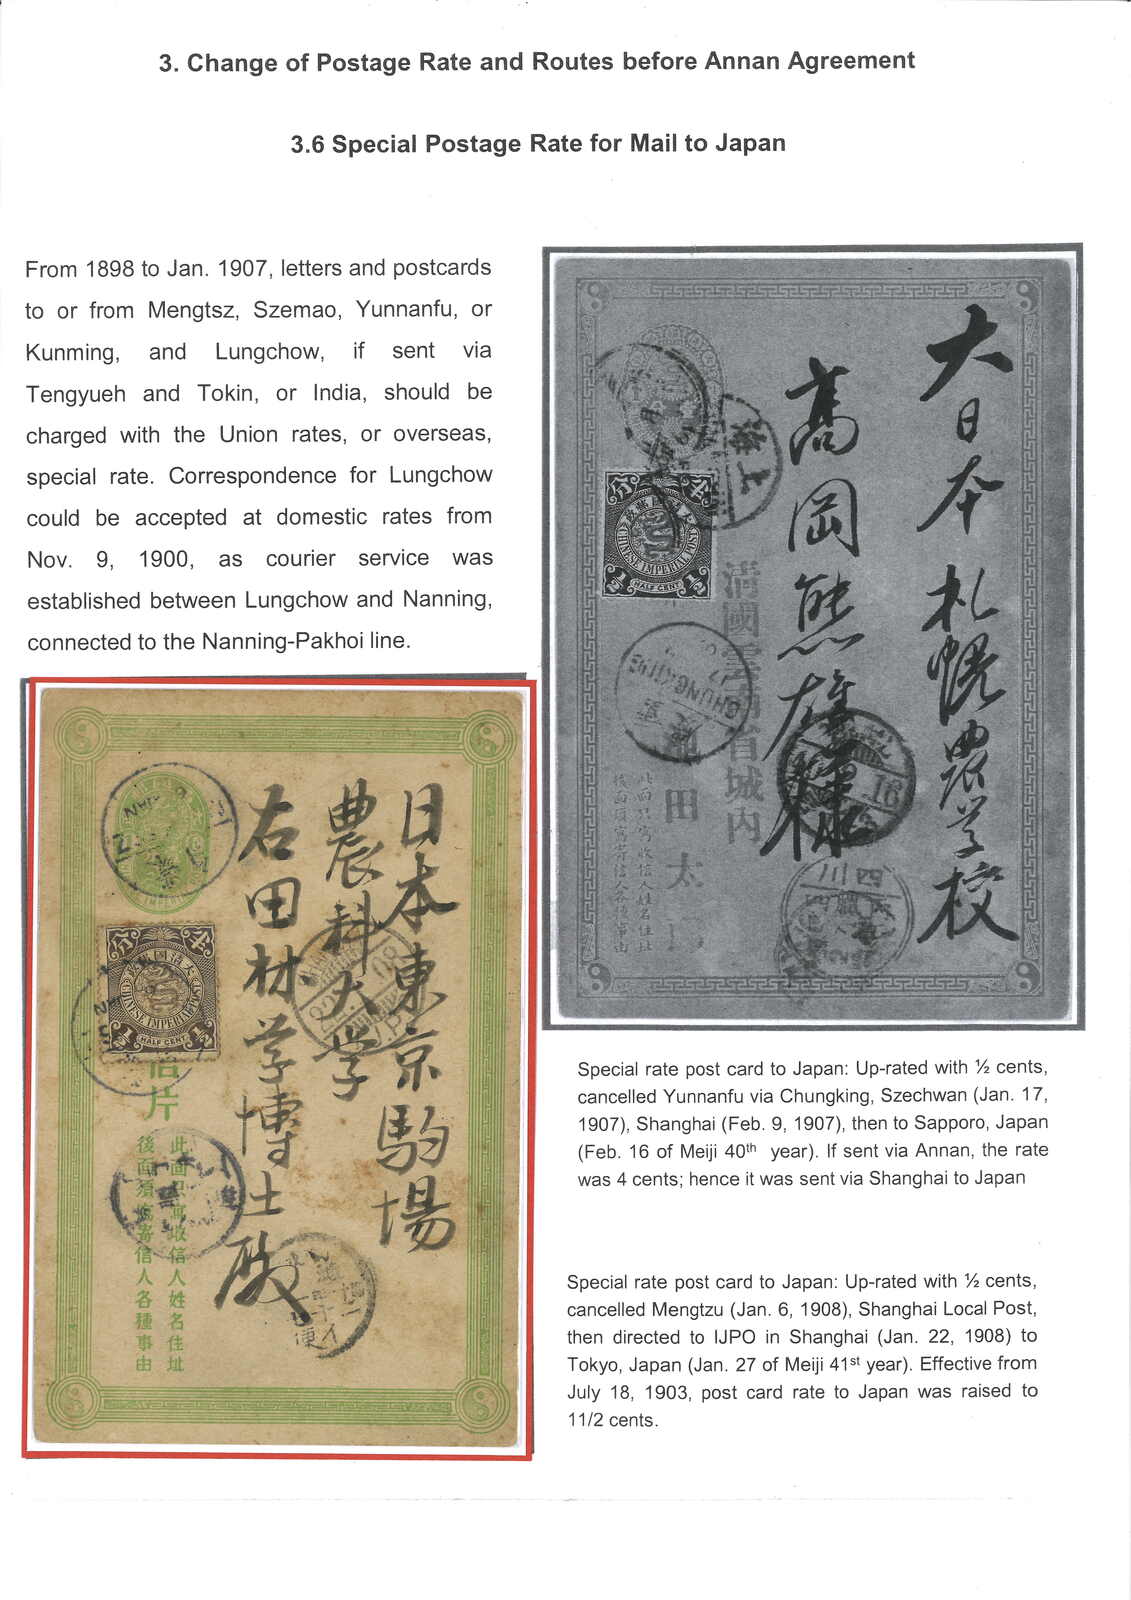 3. Change of Postage Rate and Routes before Annan Agreement
3.6 Special Postage Rate for Mail to Japan
From 1898 to Jan. 1907, letters and postcards
to or from Mengtsz, Szemao, Yunnanfu, or
Kunming, and Lungchow, if sent via
Tengyueh and Tokin, or India, should be
charged with the Union rates, or overseas,
special rate. Correspondence for Lungchow
could be accepted at domestic rates from
Nov. 9, 1900, as courier service was
established between Lungchow and Nanning,
connected to the Nanning-Pakhoi line.
大日本札幌農学校
高岡熊雄様
上海
分半
CHINESE IMPERIAL POST
½ HALF CENT ½
清國雲南省城内
池田太
CHUNGKING
重慶
16
四川
此面只寫收信人姓名住址
後面須寫寄信人各種事由
Special rate post card to Japan: Up-rated with ½ cents,
cancelled Yunnanfu via Chungking, Szechwan (Jan. 17,
1907), Shanghai (Feb. 9, 1907), then to Sapporo, Japan
(Feb. 16 of Meiji 40th year). If sent via Annan, the rate
was 4 cents; hence it was sent via Shanghai to Japan
日本東京駒場
農科大学
右田林学博士殿
分半
大清國郵政
CHINESE IMPERIAL POST
½ HALF CENT ½
信片
此面只寫收信人姓名住址
後面須寫寄信人各種事由
Special rate post card to Japan: Up-rated with ½ cents,
cancelled Mengtzu (Jan. 6, 1908), Shanghai Local Post,
then directed to IJPO in Shanghai (Jan. 22, 1908) to
Tokyo, Japan (Jan. 27 of Meiji 41st year). Effective from
July 18, 1903, post card rate to Japan was raised to
11/2 cents.